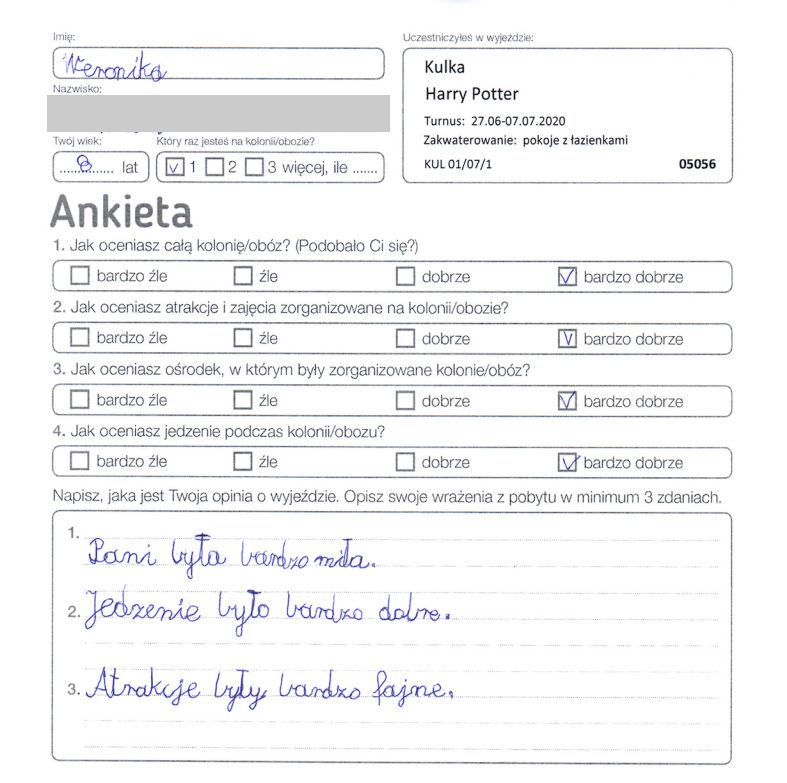 Imię:
Weronika
Nazwisko:
Twój wiek: Który raz jesteś na kolonii/obozie?
......8...... lat 1 2 3 więcej, ile .......
Uczestniczyłeś w wyjeździe:
Kulka
Harry Potter
Turnus: 27.06-07.07.2020
Zakwaterowanie: pokoje z łazienkami
KUL 01/07/1 05056
Ankieta
1. Jak oceniasz całą kolonię/obóz? (Podobało Ci się?)
bardzo źle źle dobrze bardzo dobrze
2. Jak oceniasz atrakcje i zajęcia zorganizowane na kolonii/obozie?
bardzo źle źle dobrze bardzo dobrze
3. Jak oceniasz ośrodek, w którym były zorganizowane kolonie/obóz?
bardzo źle źle dobrze bardzo dobrze
4. Jak oceniasz jedzenie podczas kolonii/obozu?
bardzo źle źle dobrze bardzo dobrze
Napisz, jaka jest Twoja opinia o wyjeździe. Opisz swoje wrażenia z pobytu w minimum 3 zdaniach.
1. Pani była bardzo miła.
2. Jedzenie było bardzo dobre.
3. Atrakcje były bardzo fajne.